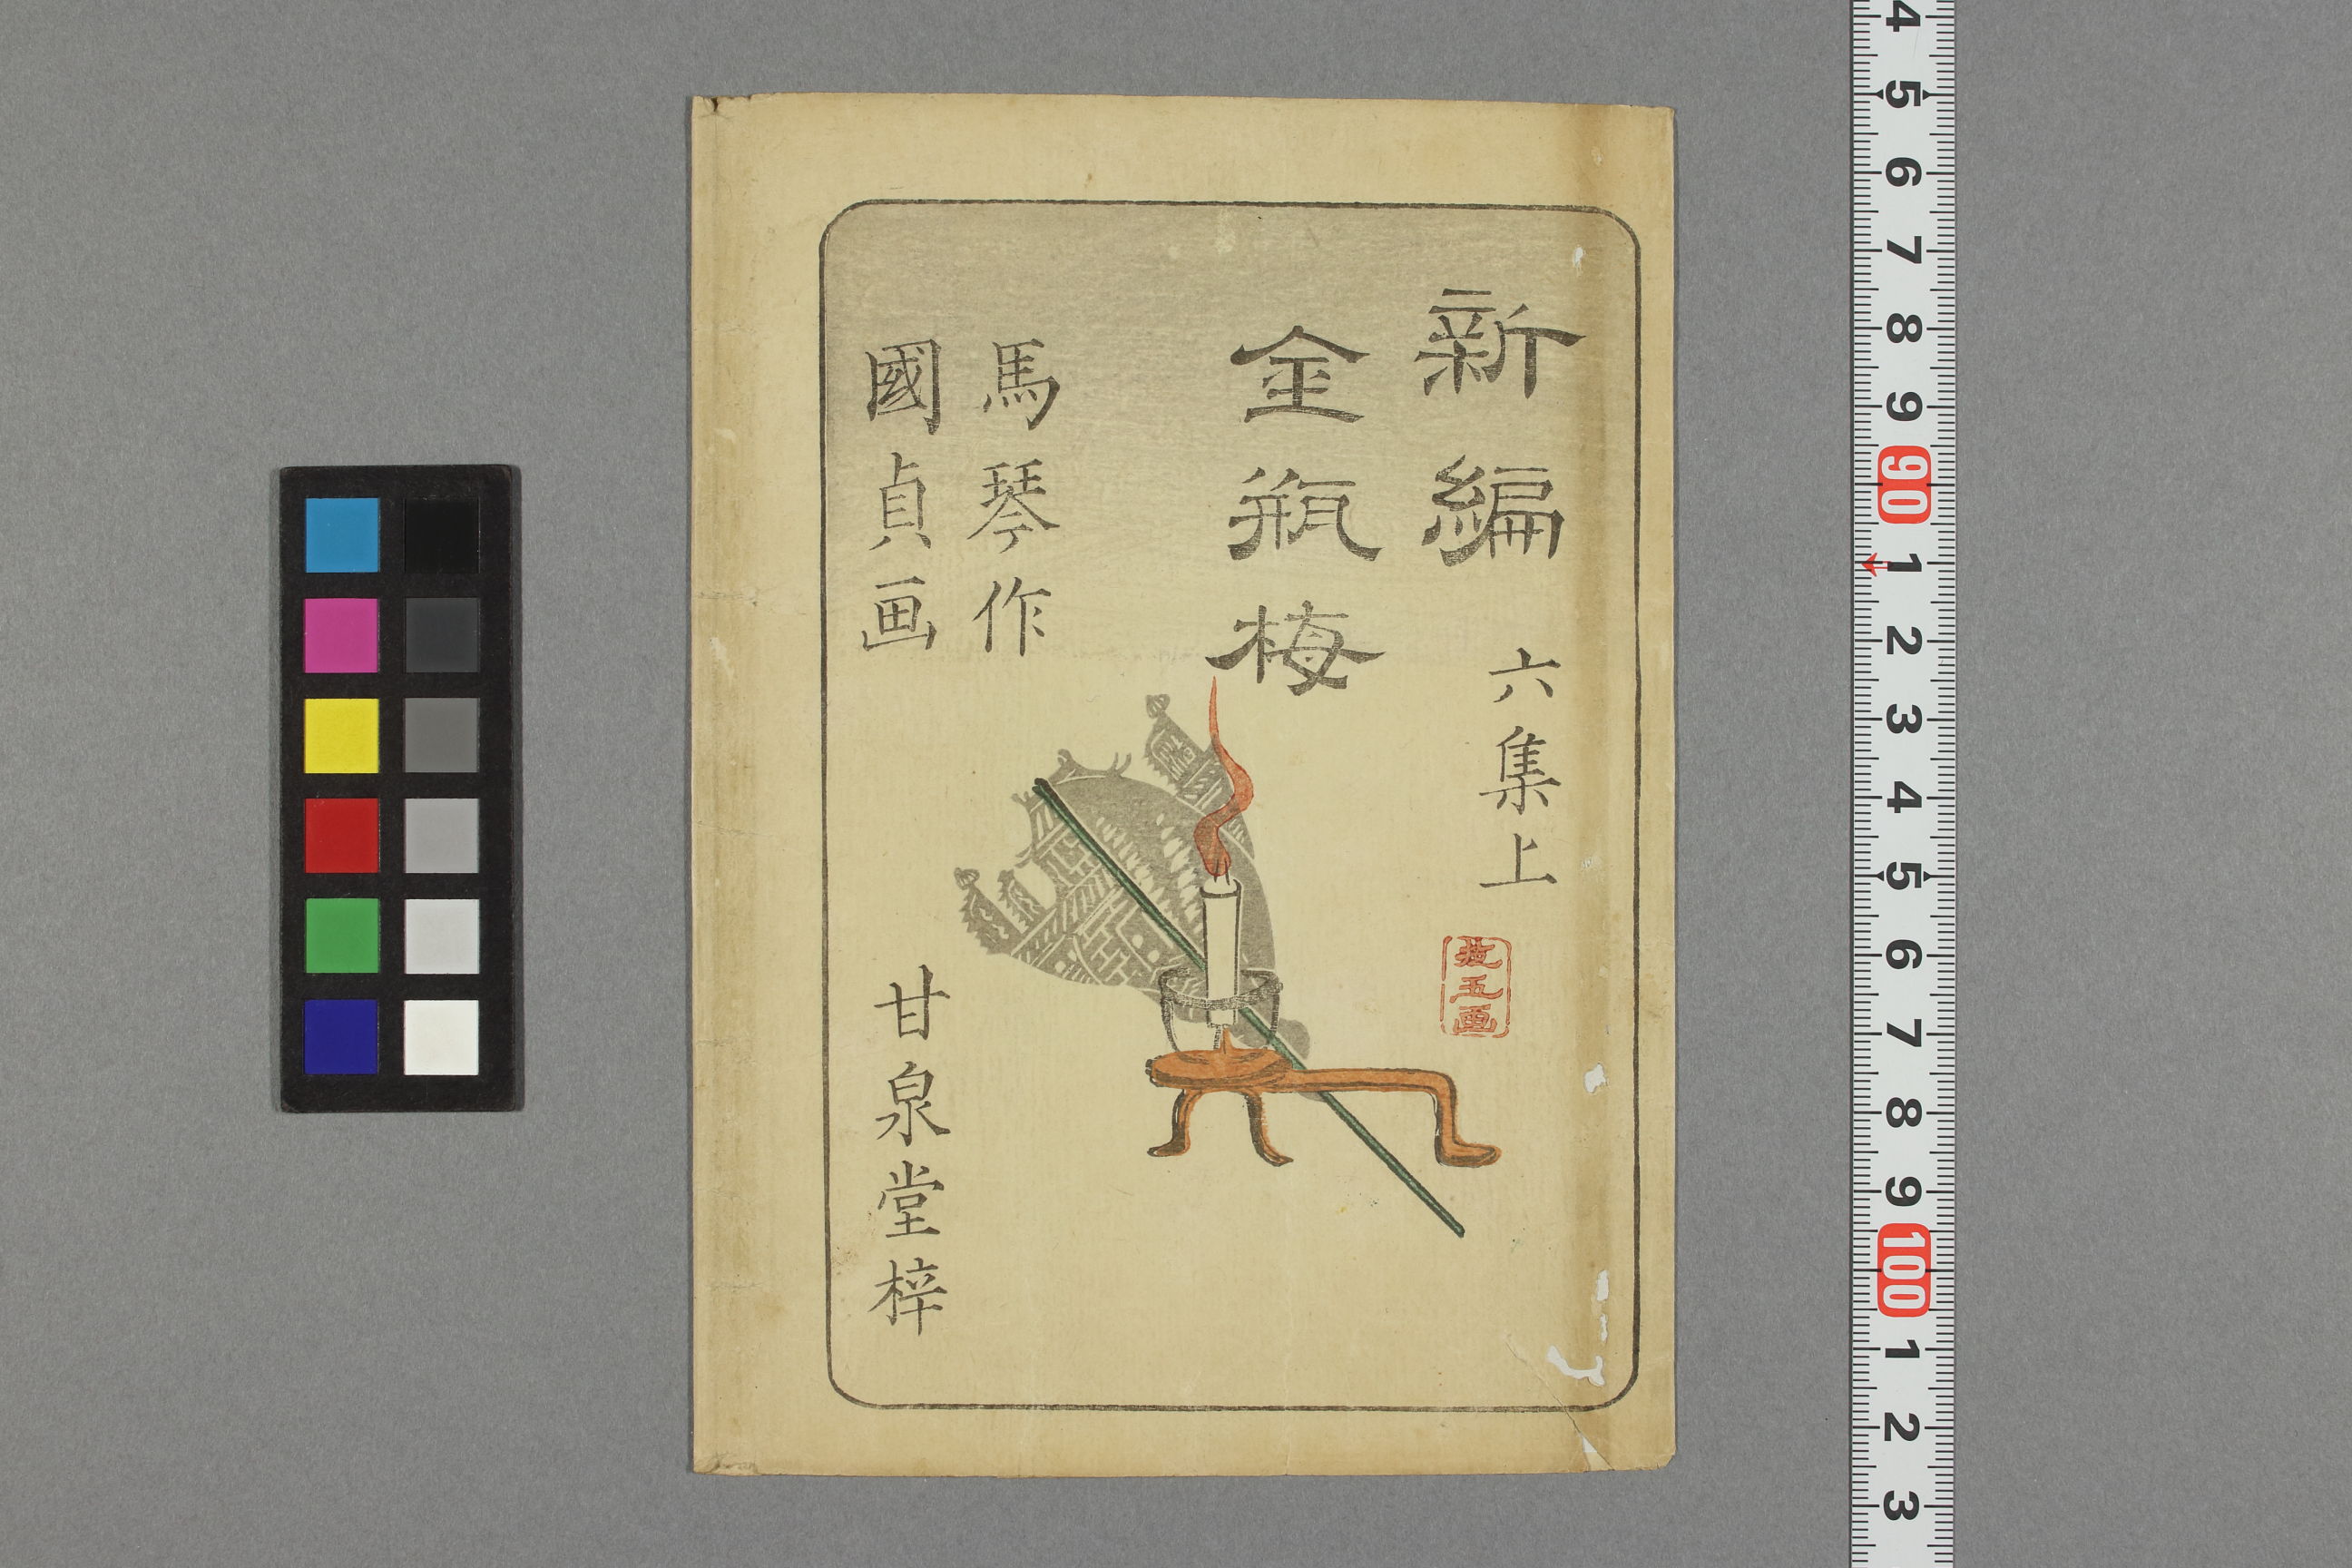 新編
六集上
金瓶梅
馬琴作
國貞画
甘泉堂梓
4 5 6 7 8 9 90 1 2 3 4 5 6 7 8 9 100 1 2 3